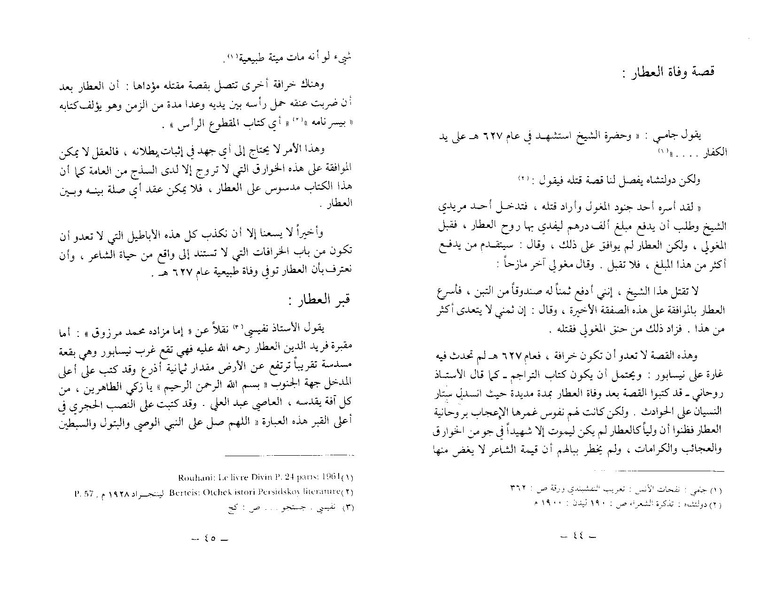 قصة وفاة العطار :
يقول جامي : « وحضرة الشيخ استشهد في عام ٦٢٧ هـ على يد
الكفار .... »(١)
ولكن دولتشاه يفصل لنا قصة قتله فيقول : (٢)
« لقد أسره أحد جنود المغول وأراد قتله ، فتدخل أحد مريدي
الشيخ وطلب أن يدفع مبلغ ألف درهم ليفدي بها روح العطار ، فقبل
المغولي ، ولكن العطار لم يوافق على ذلك ، وقال : سيتقدم من يدفع
أكثر من هذا المبلغ ، فلا تقبل . وقال مغولي آخر مازحاً :
لا تقتل هذا الشيخ ، إنني أدفع ثمناً له صندوقاً من التبن ، فأسرع
العطار بالموافقة على هذه الصفقة الأخيرة ، وقال : إن ثمني لا يتعدى أكثر
من هذا . فزاد ذلك من حنق المغولي فقتله .
وهذه القصة لا تعدو أن تكون خرافة ، فعام ٦٢٧ هـ لم تحدث فيه
غارة على نيسابور : ويحتمل أن يكون كتاب التراجم ـ كما قال الأستاذ
روحاني ـ قد كتبوا القصة بعد وفاة العطار بمدة مديدة حيث انسدل ستار
النسيان على الحوادث . ولكن كانت لهم نفوس غمرها الإعجاب بروحانية
العطار فظنوا أن ولياً كالعطار لم يكن ليموت إلا شهيداً في جو من الخوارق
والعجائب والكرامات ، ولم يخطر ببالهم أن قيمة الشاعر لا يغض منها
(١) جامي : نفحات الأنس : تعريب النقشبندي ورقة ص : ٣٦٢
(٢) دولتشاه : تذكرة الشعراء ص : ١٩٠ ليدن : ١٩٠٠ م
ـ ٤٤ ـ
شيء لو أنه مات ميتة طبيعية(١) .
وهناك خرافة أخرى تتصل بقصة مقتله مؤداها : أن العطار بعد
أن ضربت عنقه حمل رأسه بين يديه وعدا مدة من الزمن وهو يؤلف كتابه
« بيسر نامه »(٢) « أي كتاب المقطوع الرأس » .
وهذا الأمر لا يحتاج إلى أي جهد في إثبات بطلانه ، فالعقل لا يمكن
الموافقة على هذه الخوارق التي لا تروج إلا لدى السذج من العامة كما أن
هذا الكتاب مدسوس على العطار ، فلا يمكن عقد أي صلة بينه وبين
العطار .
وأخيراً لا يسعنا إلا أن نكذب كل هذه الأباطيل التي لا تعدو أن
تكون من باب الخرافات التي لا تستند إلى واقع من حياة الشاعر ، وأن
نعترف بأن العطار توفي وفاة طبيعية عام ٦٢٧ هـ .
قبر العطار :
يقول الأستاذ نفيسي(٣) نقلاً عن « إما مزاده محمد مرزوق » : أما
مقبرة فريد الدين العطار رحمه الله عليه فهي تقع غرب نيسابور وهي بقعة
مسدسة تقريباً ترتفع عن الأرض مقدار ثمانية أذرع وقد كتب على أعلى
المدخل جهة الجنوب « بسم الله الرحمن الرحيم » يا زكي الطاهرين ، من
كل آفة يقدسه ، العاصي عبد العلي . وقد كتبت على النصب الحجري في
أعلى القبر هذه العبارة « اللهم صل على النبي الوصي والبتول والسبطين
(١) Rouhani: Le livre Divin P. 24 paris: 1961
(٢) Berteis: Otchek istori Persidskoy literature لينتجراد ١٩٢٨ م , P. 57
(٣) نفيسي . جستجو ... ص : كج
ـ ٤٥ ـ